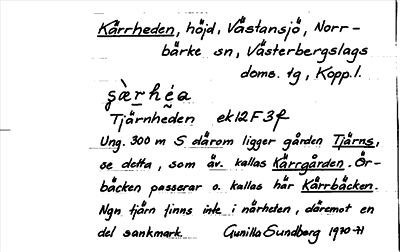 Kärrheden, höjd, Västansjö, Norr-
bärke sn, Västerbergslags
doms. tg, Kopp.l.
Tjärnheden ek12F3f
Ung. 300 m S därom ligger gården Tjärns,
se detta, som äv. kallas Kärrgården. Ör-
bäcken passerar o. kallas här Kärrbäcken.
Ngn tjärn finns inte i närheten, däremot en
del sankmark. Gunilla Sundberg 1970-71